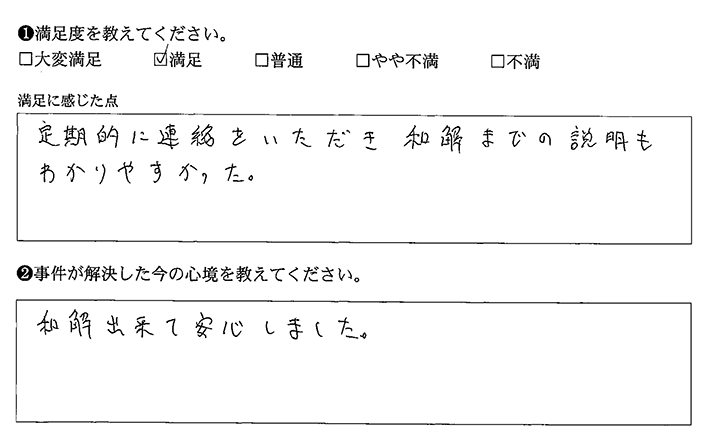 ❶満足度を教えてください。
□大変満足 ☑満足 □普通 □やや不満 □不満
満足に感じた点
定期的に連絡をいただき 和解までの説明も
わかりやすかった。
❷事件が解決した今の心境を教えてください。
和解出来て安心しました。